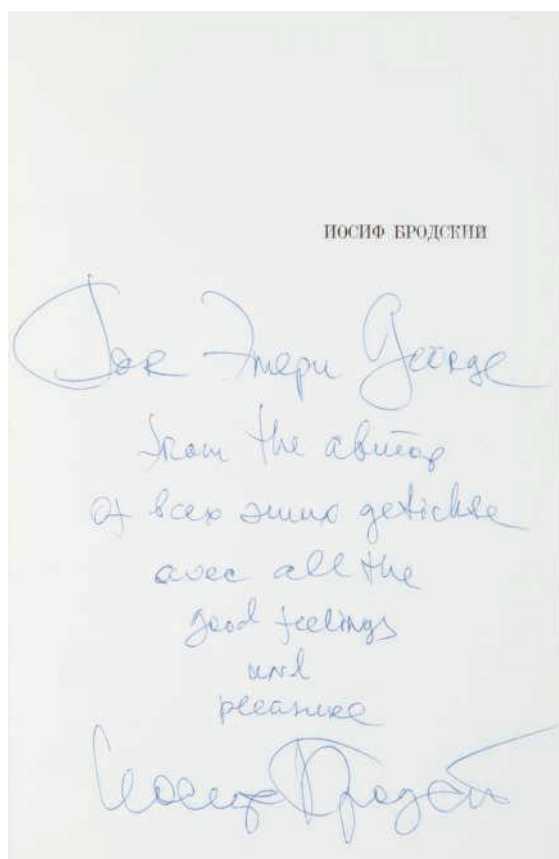 ИОСИФ БРОДСКИЙ
Для Эмери George
from the автор
of всех этих gedichte
avec all the
good feelings
und
pleasure
Иосиф Бродский